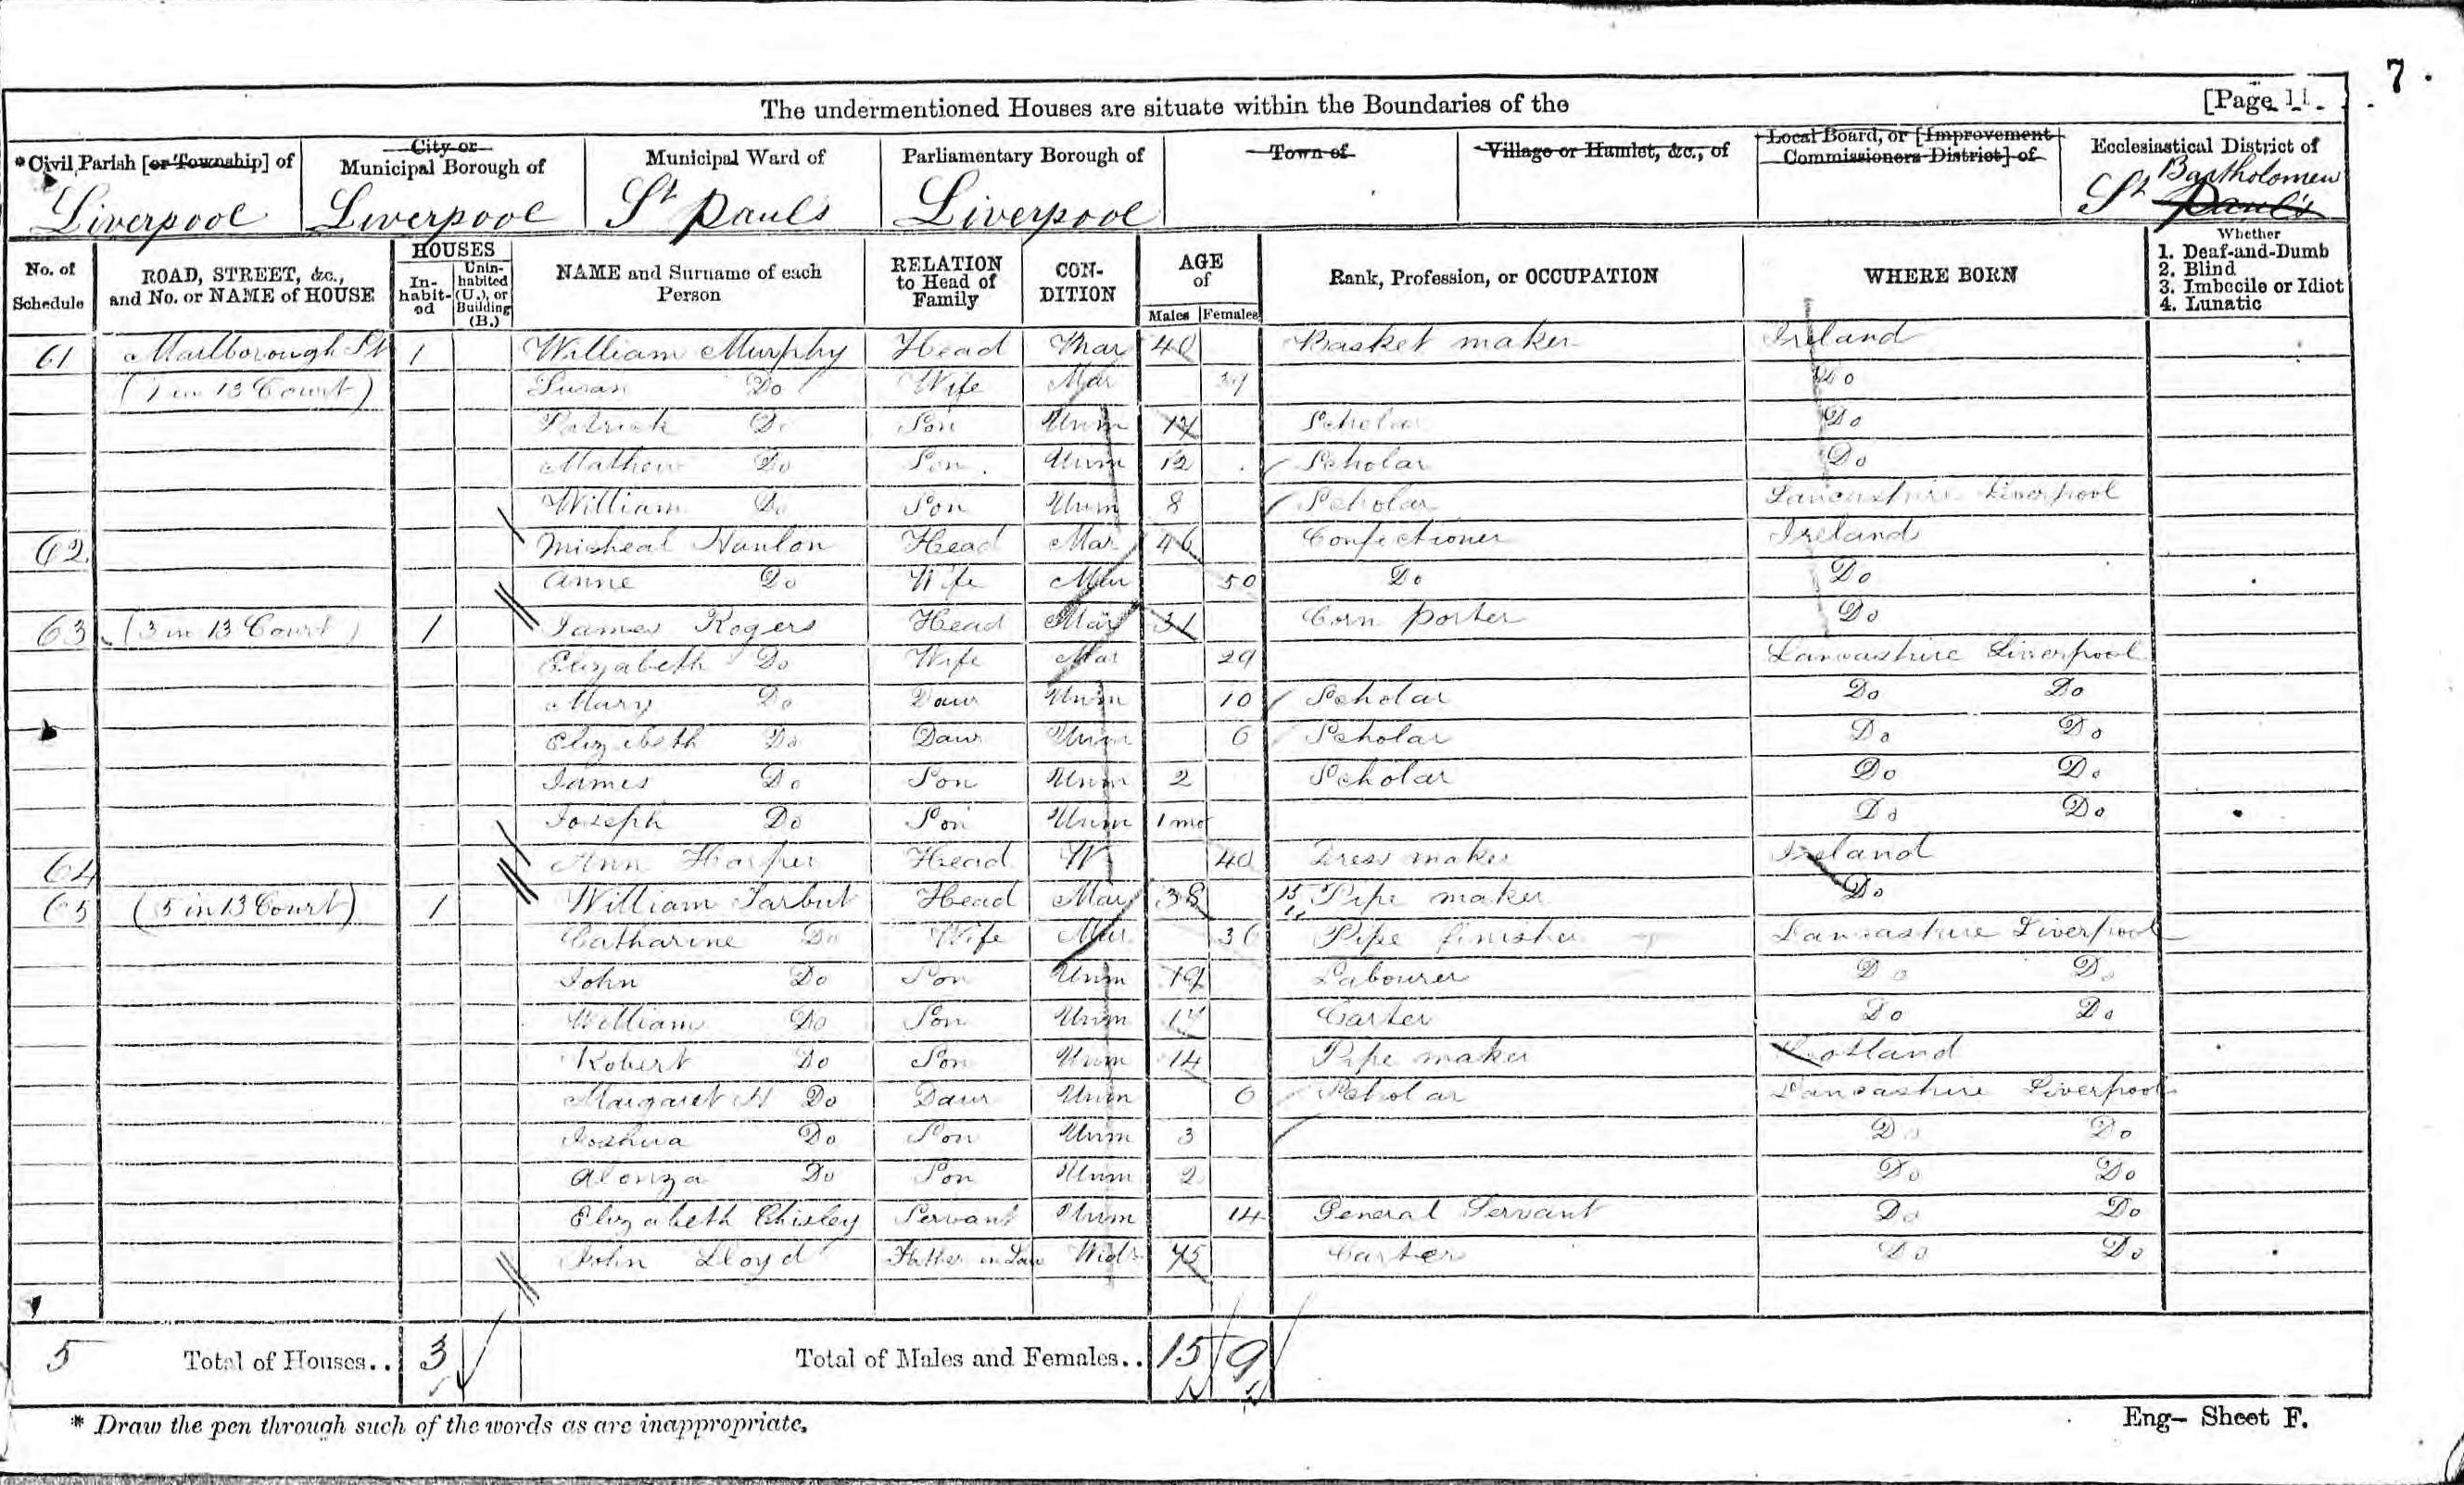 7.
The undermentioned Houses are situate within the Boundaries of the [Page 11.
*Civil Parish [or Township] of
City or Municipal Borough of
Municipal Ward of
Parliamentary Borough of
Town of
Village or Hamlet, &c., of
Local Board, or [Improvement Commissioners District] of
Ecclesiastical District of
Liverpool Liverpool St Pauls Liverpool St Bartholomew Paul's
No. of Schedule
ROAD, STREET, &c., and No. or NAME of HOUSE
HOUSES
In-habit-ed
Unin-habited (U.), or Building (B.)
NAME and Surname of each Person
RELATION to Head of Family
CON-DITION
AGE of
Males Females
Rank, Profession, or OCCUPATION
WHERE BORN
Whether
1. Deaf-and-Dumb
2. Blind
3. Imbecile or Idiot
4. Lunatic
61 Marlborough St 1 William Murphy Head Mar 40 Basket maker Ireland
(1 in 13 Court) Susan Do Wife Mar Do
Patrick Do Son Unm Scholar Do
Mathew Do Son Unm 12 Scholar Do
William Do Son Unm 8 Scholar Lancashire Liverpool
62 Micheal Hanlon Head Mar 46 Confectioner Ireland
Anne Do Wife Mar 50 Do Do
63 (3 in 13 Court) 1 James Rogers Head Mar 31 Corn porter Do
Elizabeth Do Wife Mar 29 Lancashire Liverpool
Mary Do Daur Unm 10 Scholar Do Do
Elizabeth Do Daur Unm 6 Scholar Do Do
James Do Son Unm 2 Scholar Do Do
Joseph Do Son Unm 1 mo Do Do
64 Ann Harper Head W 40 Dress maker Ireland
65 (5 in 13 Court) 1 William Tarbut Head Mar 38 Pipe maker Do
Catharine Do Wife Mar 36 Pipe finisher Lancashire Liverpool
John Do Son Unm 19 Labourer Do Do
William Do Son Unm Carter Do Do
Robert Do Son Unm 14 Pipe maker Scotland
Margaret H Do Daur Unm 6 Scholar Lancashire Liverpool
Joshua Do Son Unm 3 Do Do
Alonza Do Son Unm 2 Do Do
Elizabeth Chisley Servant Unm 14 General Servant Do Do
John Lloyd Father in Law Widr 75 Carter Do Do
5 Total of Houses.. 3 Total of Males and Females.. 15 9
* Draw the pen through such of the words as are inappropriate.
Eng- Sheet F.